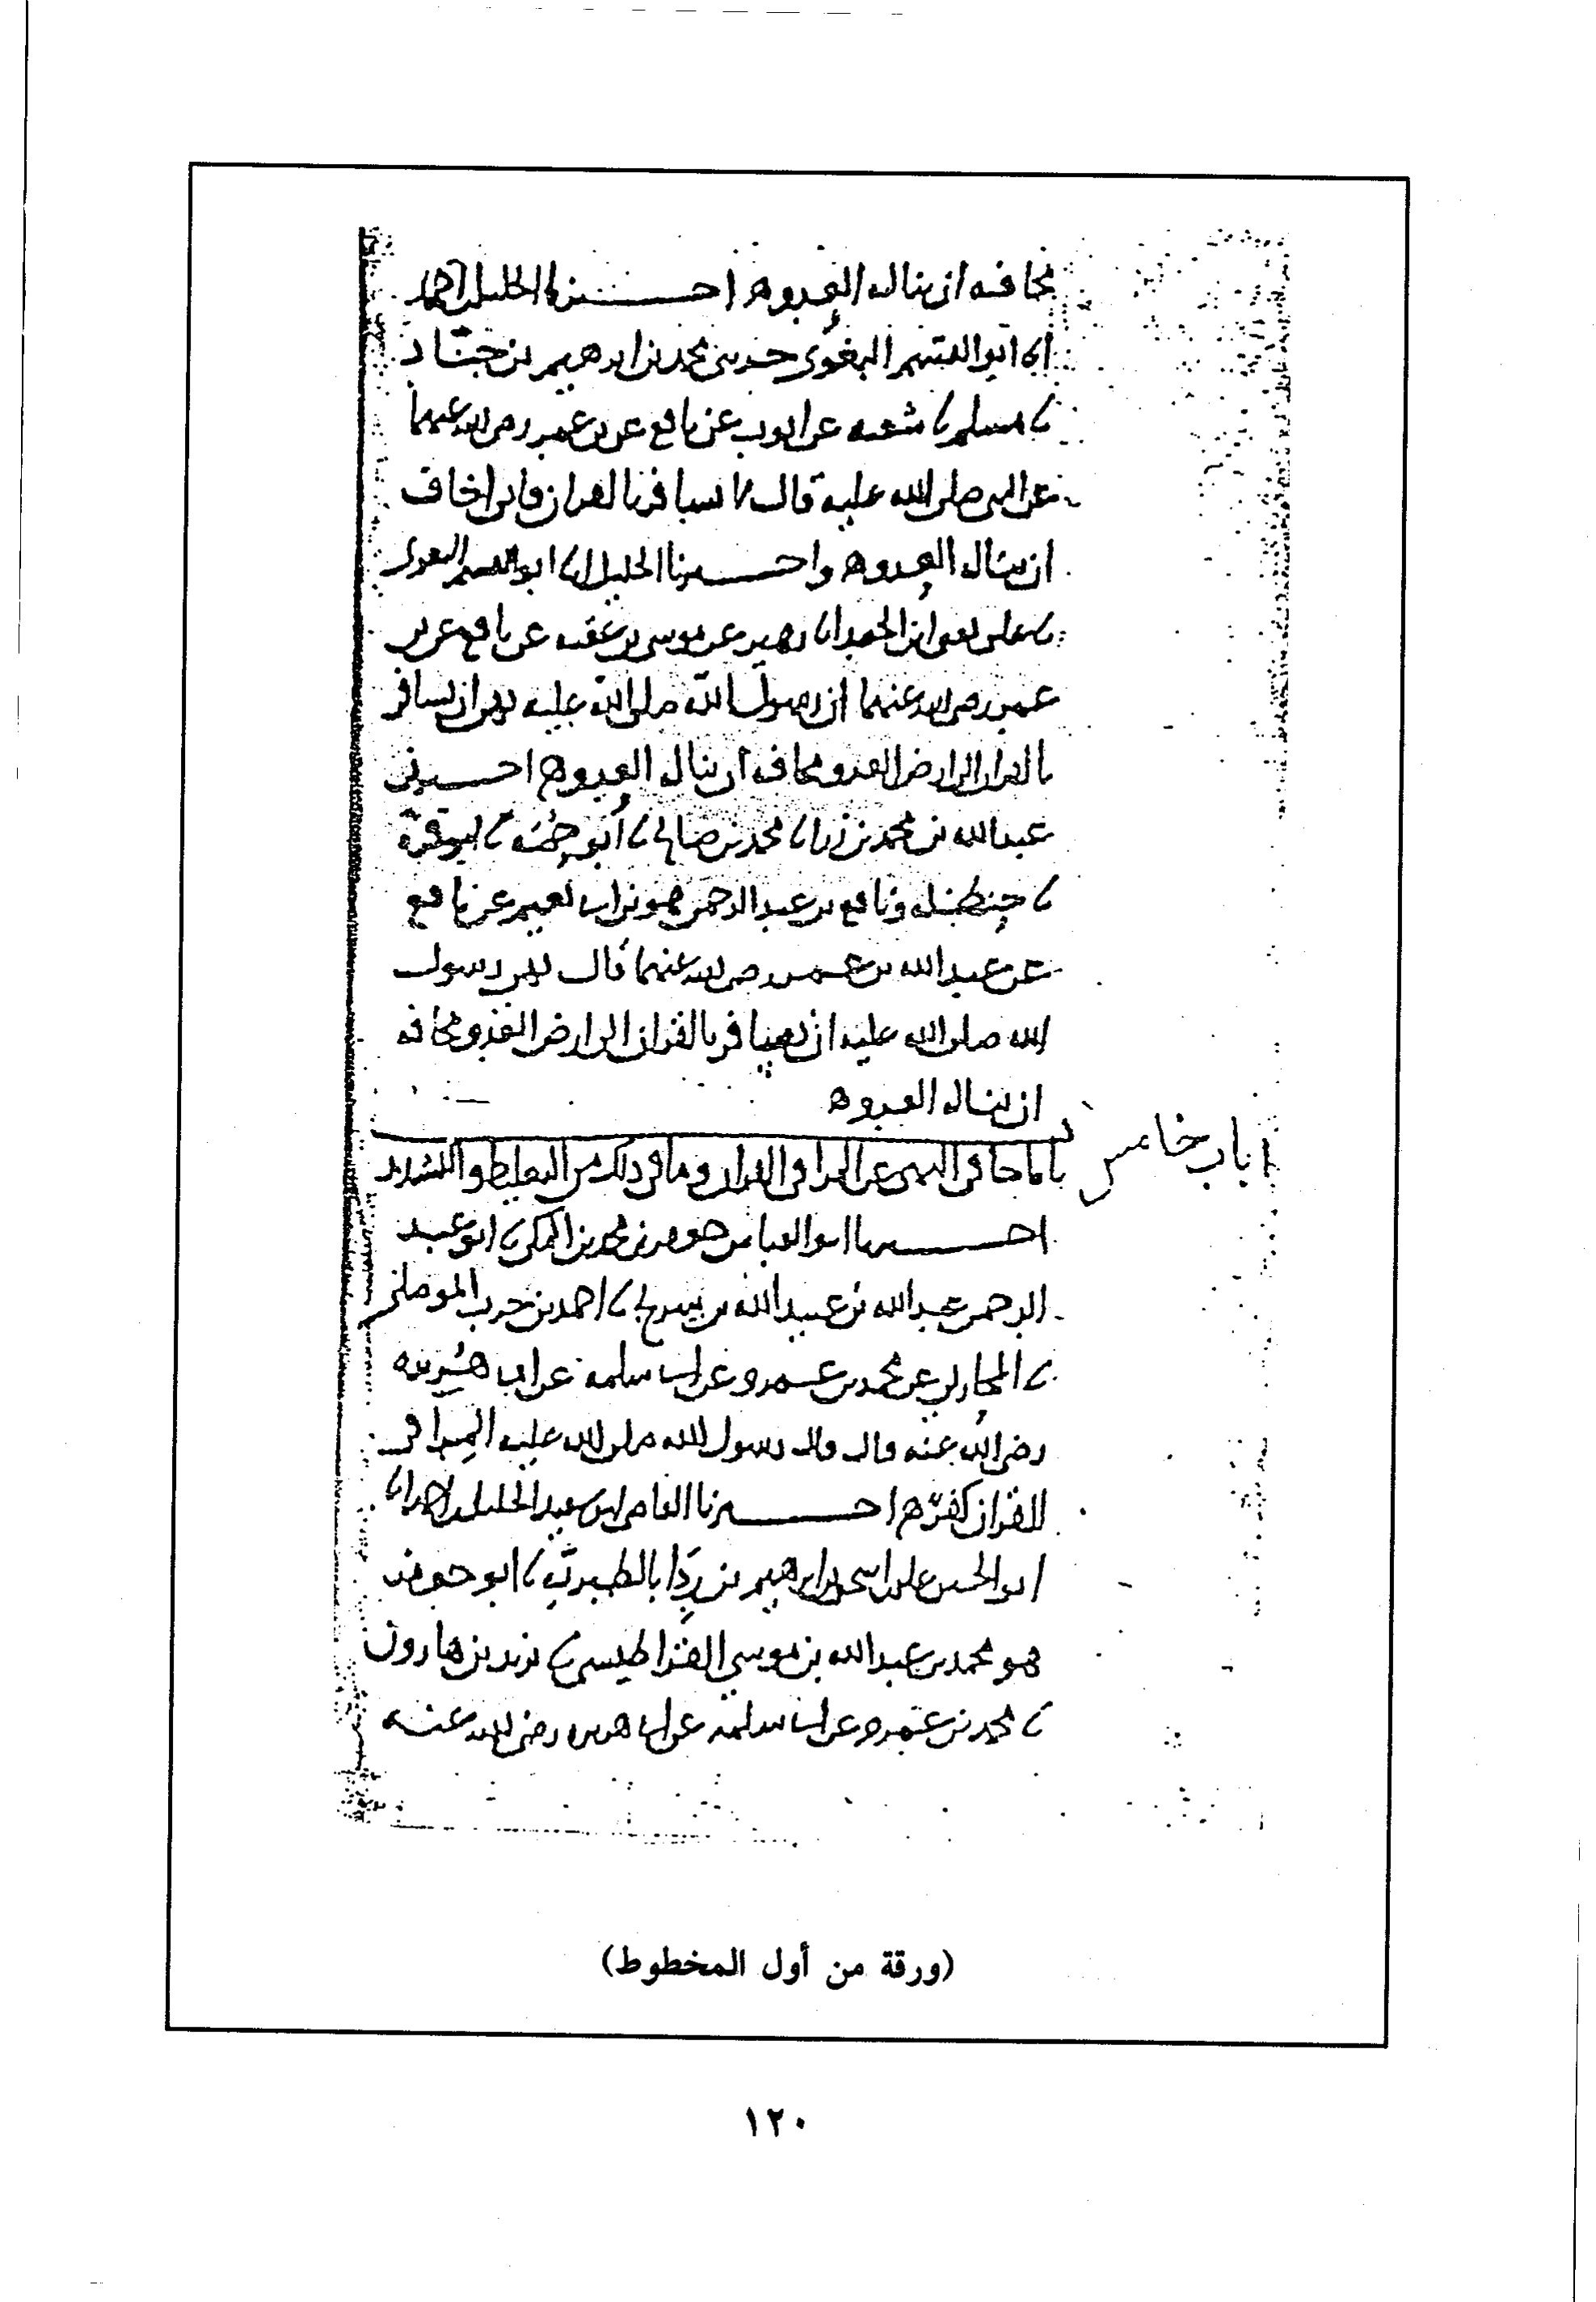 مخافه ان يناله العدو ه اخبرنا الخليل بن احمد
انا ابو القسم البغوي حدثني محمد بن ابرهيم بن جناد
نا مسلم نا شعبه عن ايوب عن نافع عن بن عمر رضى الله عنهما
عن النبى صلى الله عليه قال لا تسافروا بالقران فانى اخاف
ان يناله العدو ه واخبرنا الخليل انا ابو القسم البغوى
نا على يعنى ابن الجعد انا زهير عن موسى بن عقبه عن نافع عن بن
عمر رضى الله عنهما ان رسول الله صلى الله عليه نهى ان يسافر
بالقران الى ارض العدو مخافه ان يناله العدو ه اخبرنى
عبد الله بن محمد بن زر نا محمد بن صالح نا ابو حمه نا ابو قرة
نا حنظله ونافع بن عبد الرحمن هو بن ابى نعيم عن نافع
عن عبد الله بن عمر رضى الله عنهما قال نهى رسول
الله صلى الله عليه ان يسافر بالقران الى ارض العدو مخافه
ان يناله العدو ه
باب خامس
باب ما جا فى النهى عن المرا فى القران وما فى ذلك من التغليظ والتشديد
اخبرنا ابو العباس جعفر بن محمد بن المكى نا ابو عبد
الرحمن عبد الله بن عبيد الله بن سريج نا احمد بن حرب الموصلى
نا المحاربى عن محمد بن عمرو عن ابى سلمه عن ابى هريره
رضى الله عنه قال قال رسول الله صلى الله عليه المرا فى
القران كفر ه اخبرنا القاضى ابو سعيد الخليل بن احمد انا
ابو الحسن على بن اسحق بن ابرهيم بن ردا بالطبريه نا ابو جعفر
هو محمد بن عبد الله بن موسى القراطيسى نا يزيد بن هارون
نا محمد بن عمرو عن ابى سلمه عن ابى هريره رضى الله عنه
(ورقة من أول المخطوط)
١٢٠